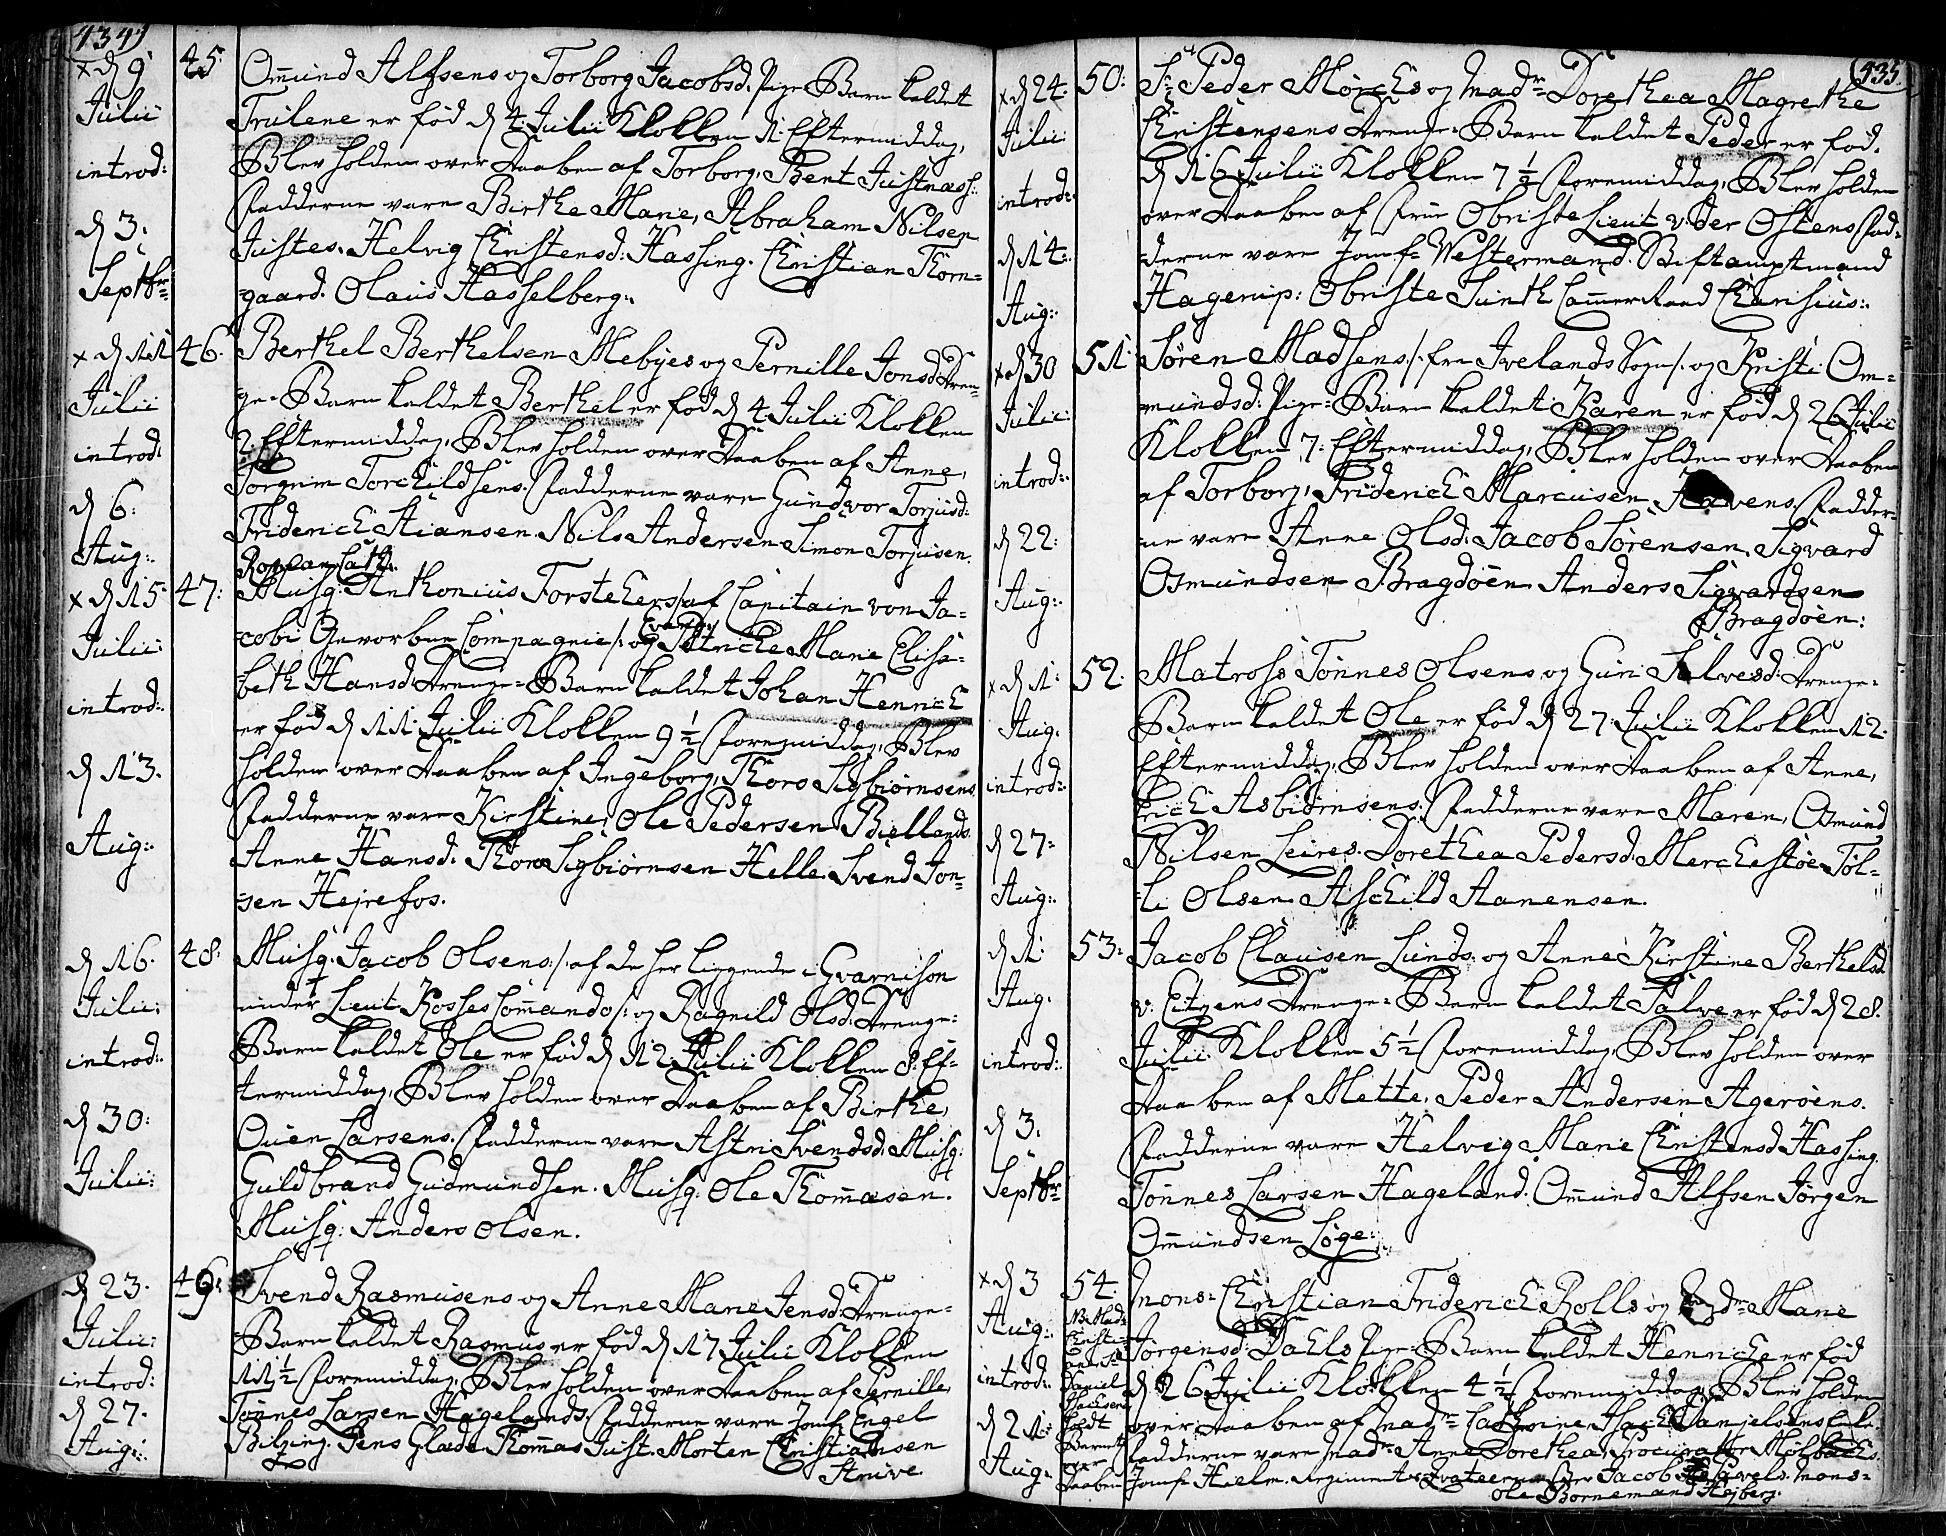 434
x d 9
Julii
introd:
d 3.
Septbr:
45.
Omund Alfsens og Torborg Jacobsd. Pige-Barn kaldet
Trulene er fød d 4. Julii Klokken 1. Eftermiddag,
Blev holden over Daaben af Torborg, Bent Justnæss:
Fadderne vare Birthe Marie, Abraham Nilsen
Justes. Helvig Christensd: Hassing. Christian Torn-
gaard. Olaus Hasselberg.
x d 11
Julii
introd:
d 6.
Aug:
46.
Berthel Berthelsen Mebyes og Pernille Jonsd. Dren-
ge-Barn kaldet Berthel er fød d 4 Julii Klokken
2. Eftermiddag, Blev holden over Daaben af Anne,
Torgrim Torchildsens. Fadderne vare Gundvor Torjusd:
Friderich Aiansen. Nils Andersen. Simon Torjusen.
x d 15.
Julii:
introd:
d 13.
Aug:
47.
Musq: Anthonius Forstehers /: af Capitain von Ja-
cobi Gevorbne Compagnie /: og Patriche Marie Elisa-
beth Hansd. Drenge-Barn kaldet Johan Henrich
er fød d 11. Julii Klokken 9 1/2 Foremiddag, Blev
holden over Daaben af Ingeborg, Thoro Sigbiørnsens.
Fadderne vare Kirstine, Ole Pedersen Biellands.
Anne Hansd. Thoro Sigbiørnsen Helle. Svend Jon-
sen Hejrefos.
d 16.
Julii:
introd:
d 30:
Julii:
48.
Musq. Jacob Olsens /: af de her liggende i Gvarnison
under Lieut. Kosses Commando /: og Ragnild Olsd. Drenge-
Barn kaldet Ole er fød d 12 Julii Klokken 8. Ef-
termiddag, Blev holden over Daaben af Birthe,
Ouen Larsens. Fadderne vare Astri Svendsd. Musq:
Guldbrand Gudmundsen. Musq: Ole Thomasen.
Musq: Anders Olsen.
d 23.
Julii:
introd:
d 27.
Aug:
49.
Svend Rasmusens og Anne Marie Jensd. Drenge-
Barn kaldet Rasmus er fød d 17 Julii Klokken
11 1/2 Foremiddag, Blev holden over Daaben af Pernille,
Tønnes Larsen Hagelands. Fadderne vare Jomf. Engel
Bilzing. Jens Glad. Thommas Just. Morten Christiansen
Struve.
435.
x d 24.
Julii
introd:
d 14.
Aug:
50:
Sr. Peder Mørchs og Madr. Dorethea Magrethe
Christensens Drenge-Barn kaldet Peder er fød.
d 16 Julii Klokken 7 1/2 Foremiddag, Blev holden
over Daaben af Frue Obriste Lieut. v: der Ostens Fad-
derne vare Jomf. Westermand. Stiftamptmand
Hagerup: Obriste Sunth Cammer Raad Charisius:
x d 30
Julii:
introd:
d 22.
Aug:
51.
Søren Madsens /: fra Ivelands Sogn /: og Kristi Om-
mundsd: Pige-Barn kaldet Karen er fød d 26 Julii
Klokken 7. Eftermiddag, Blev holden over Daaben
af Torborg, Friderich Marcusen Havens. Fadder-
ne vare Anne Olsd. Jacob Sørensen, Sigvard
Osmundsen Bragdøen. Anders Sigvardsen
Bragdøen:
x d 1.
Aug.
introd:
d 27.
Aug:
52.
Matross Tønnes Olsens og Guri Salvesd: Drenge-
Barn kaldet Ole er fød d 27. Julii Klokken 12.
Eftermiddag, Blev holden over Daaben af Anne,
Erich Asbiørnsens. Fadderne vare Maren, Osmund
Nilsen Leires. Dorethea Pedersd. Merchestøe. Tøl-
li Olsen. Aschild Aanensen.
d 1.
Aug.
introd:
d 3.
Septbr
53.
Jacob Clausen Lunds. og Anne Kirstine Berthelsd.
v. Eitzens Drenge-Barn kaldet Salve er fød d 28.
Julii Klokken 5 1/2 Foremiddag, Blev holden over
Daaben af Mette, Peder Andersen Agerøens.
Fadderne vare Helvig Marie Christensd Hassing.
Tønnes Larsen Hageland. Omund Alfsen Jørgen
Omundsen Løge:
x d 3
Aug:
introd:
d 21:
Aug:
54.
Daniel
Isachsens
holdt
Barnet
over
Daaben
Mons: Christian Friderich Rolls og Madr. Marie
Jørgensd. Dahls Pige-Barn kaldet Henriche er fød
d 26 Julii Klokken 4 1/2 Foremiddag, Blev holden
over Daaben af Madr. Cathrine Isach Danjelsens
Fadderne vare Madr. Anne Dorethea, Procurator Mølbachs.
Jomf. Hielm. Regiments Qvarteermester Jacob Pavels. Mons:
Ole Bornemand Hejberg.